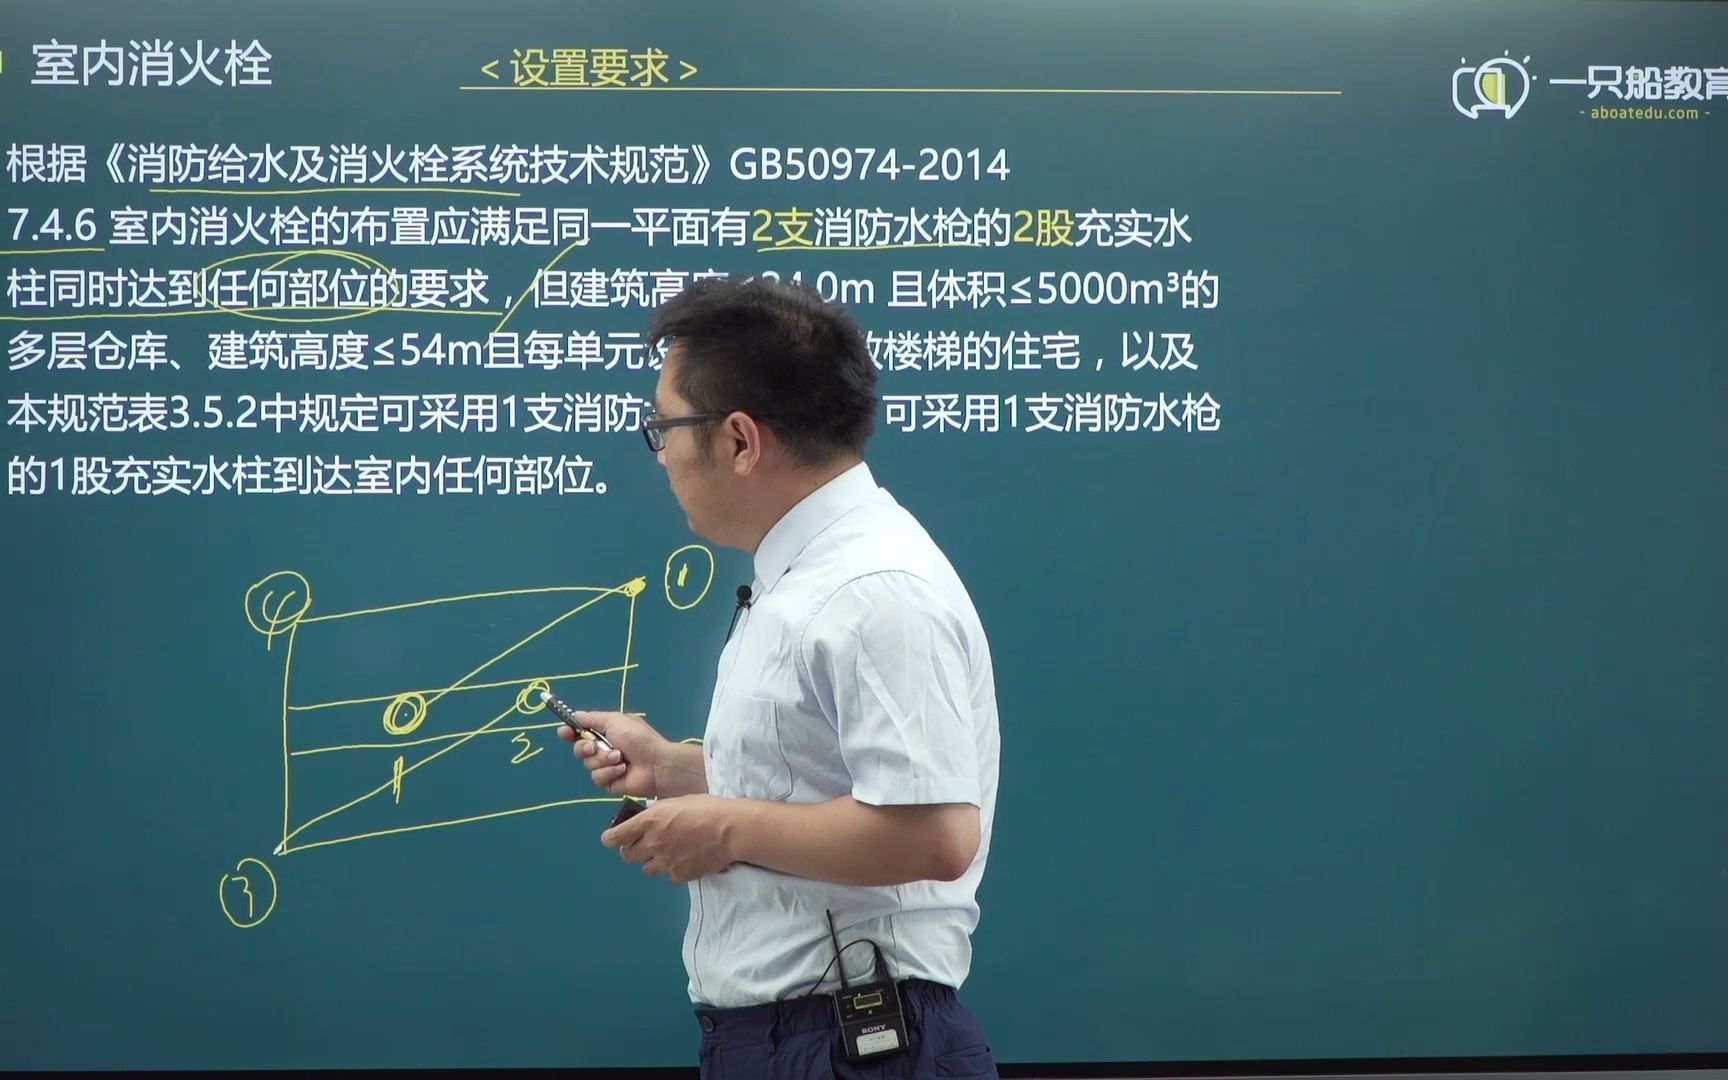 室内消火栓
<设置要求>
一只船教育
- aboatedu.com -
根据《消防给水及消火栓系统技术规范》GB50974-2014
7.4.6 室内消火栓的布置应满足同一平面有2支消防水枪的2股充实水
柱同时达到任何部位的要求，但建筑高 0m 且体积≤5000m³的
多层仓库、建筑高度≤54m且每单元 楼梯的住宅，以及
本规范表3.5.2中规定可采用1支消防 可采用1支消防水枪
的1股充实水柱到达室内任何部位。
4
1
2
1
3
SONY